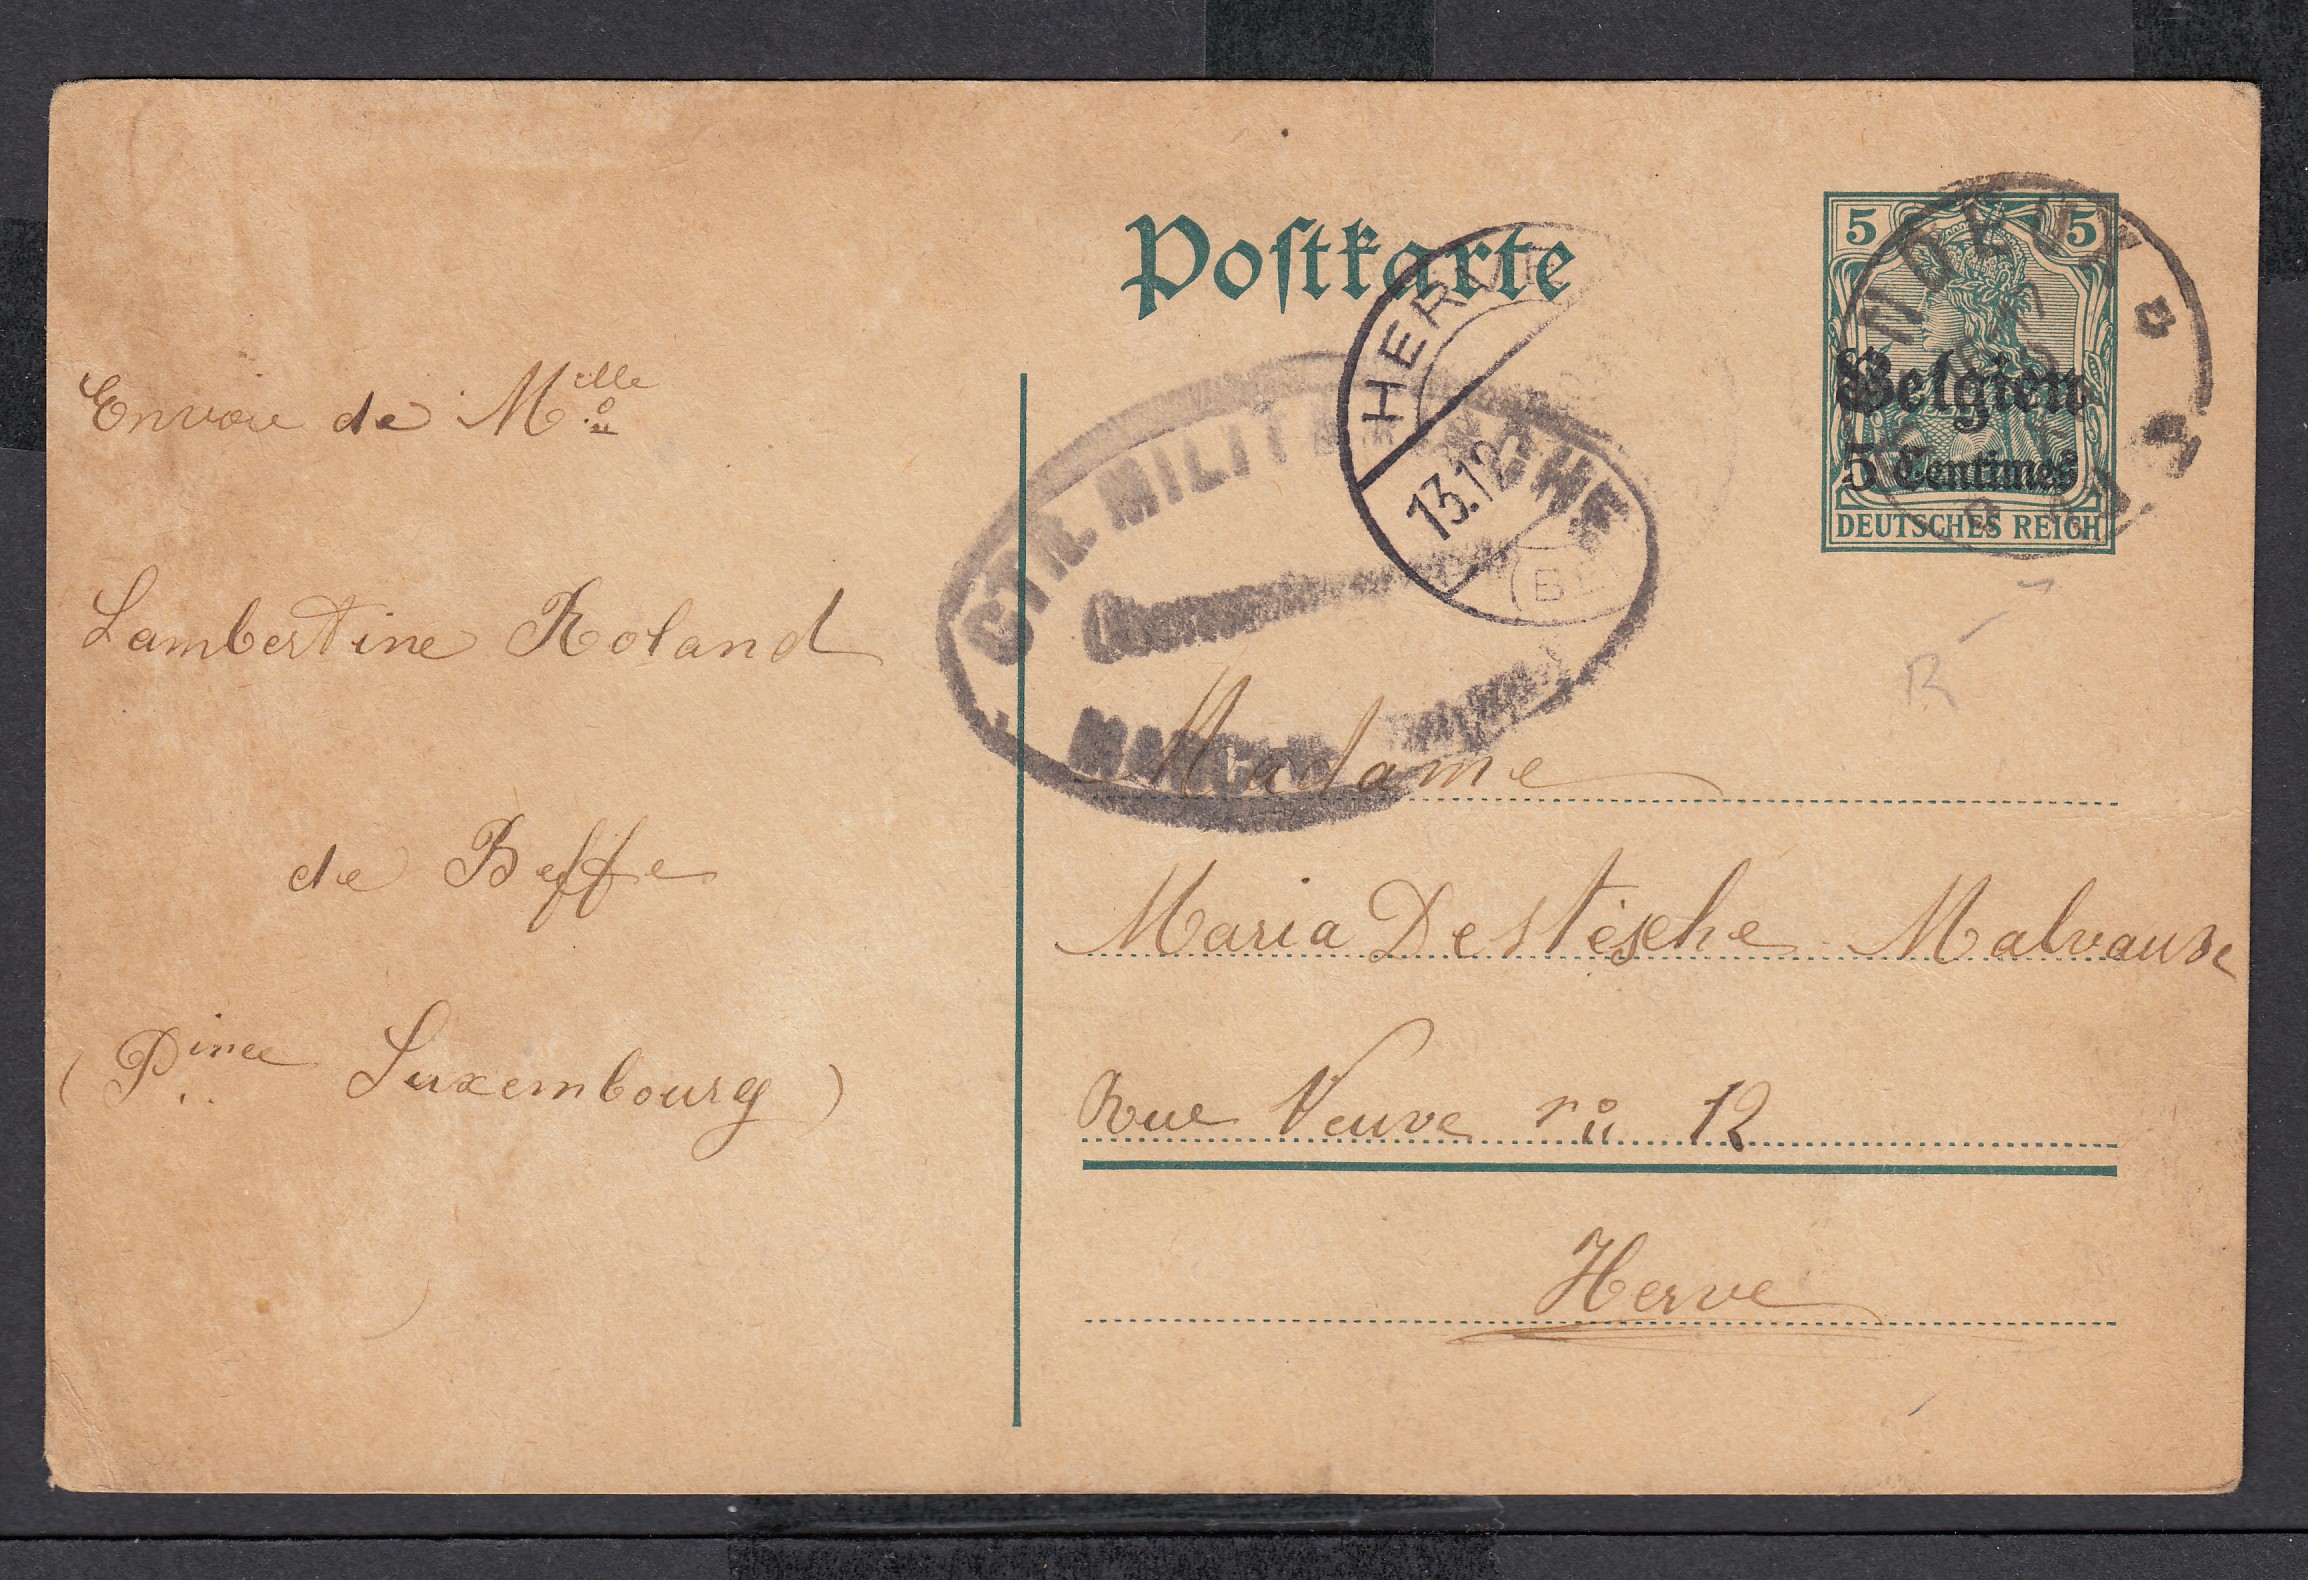 Postkarte
5 5
Belgien
5 Centimes
DEUTSCHES REICH
HERVE
13.12
(BEL
CTR. MILIT
MARCHE
Envoie de M^elle
Lambertine Roland
de Beffe
(P^ince Luxembourg)
Madame
Maria Destèxhe-Malvause
Rue Neuve n° 12
Herve